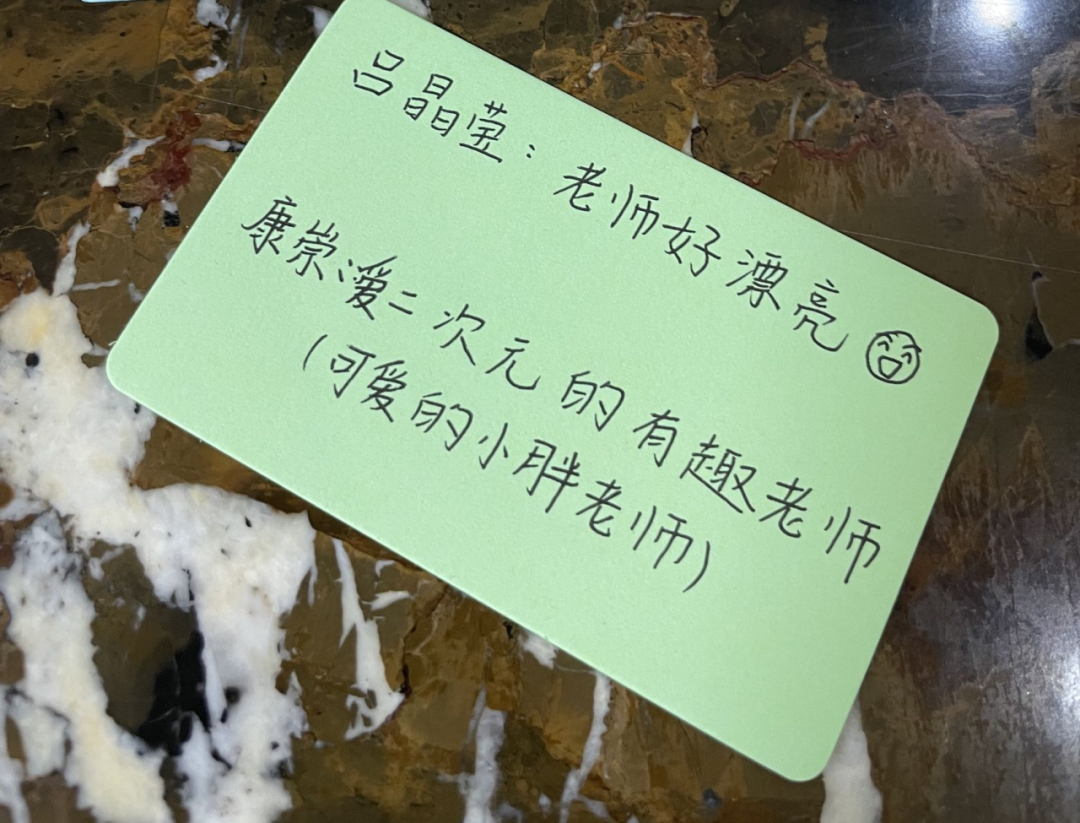 吕晶莹：老师好漂亮
康崇:爱二次元的有趣老师
(可爱的小胖老师)